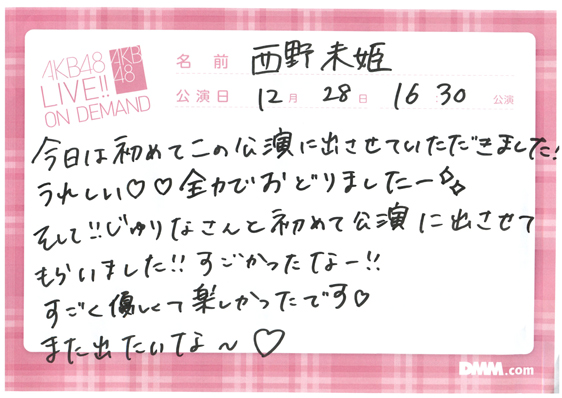 AKB48
LIVE!!
ON DEMAND
AKB
48
名前 西野未姫
公演日 12月 28日 16:30 公演
今日は初めてこの公演に出させていただきました!
うれしい♡♡全力でおどりましたー✧✧
そして!!じゅりなさんと初めて公演に出させて
もらいました!!すごかったなー!!
すごく優しくて楽しかったです♡
また出たいな〜♡
DMM.com